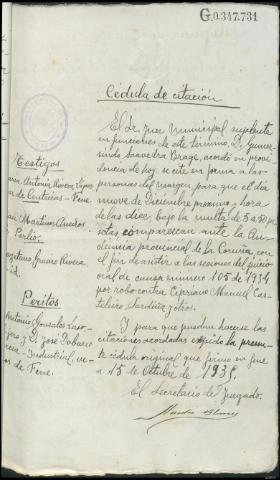 G.0.347.731
Cédula de citación
El Sr. Juez Municipal, suplente
en funciones de este término, D. Gumer-
sindo Saavedra Brage, acordó en provi-
dencia de hoy se cite en forma a las
personas del margen, para que el día
nueve de Diciembre proximo y hora
de las diez, bajo la multa de 5 a 50 pe-
setas comparezcan ante la Au-
diencia provincial de la Coruña, con
el fin de asistir a las sesiones del juicio
oral de causa numero 105 de 1934
por robo contra Cipriano Manuel Cas-
teleiro Sardiña y otros.
Y para que puedan hacerse las
citaciones acordadas expido la presen-
te cédula original que firmo en Fene
a 15 de Octubre de 1935.
El Secretario de Juzgado.
Testigos
María Antonia Rivera López
de Centieiras - Fene.
Martínez Aneiros
Perlío.
Rivera
id.
Peritos
Antonio González
y D. José
Industrial, ve-
de Fene.